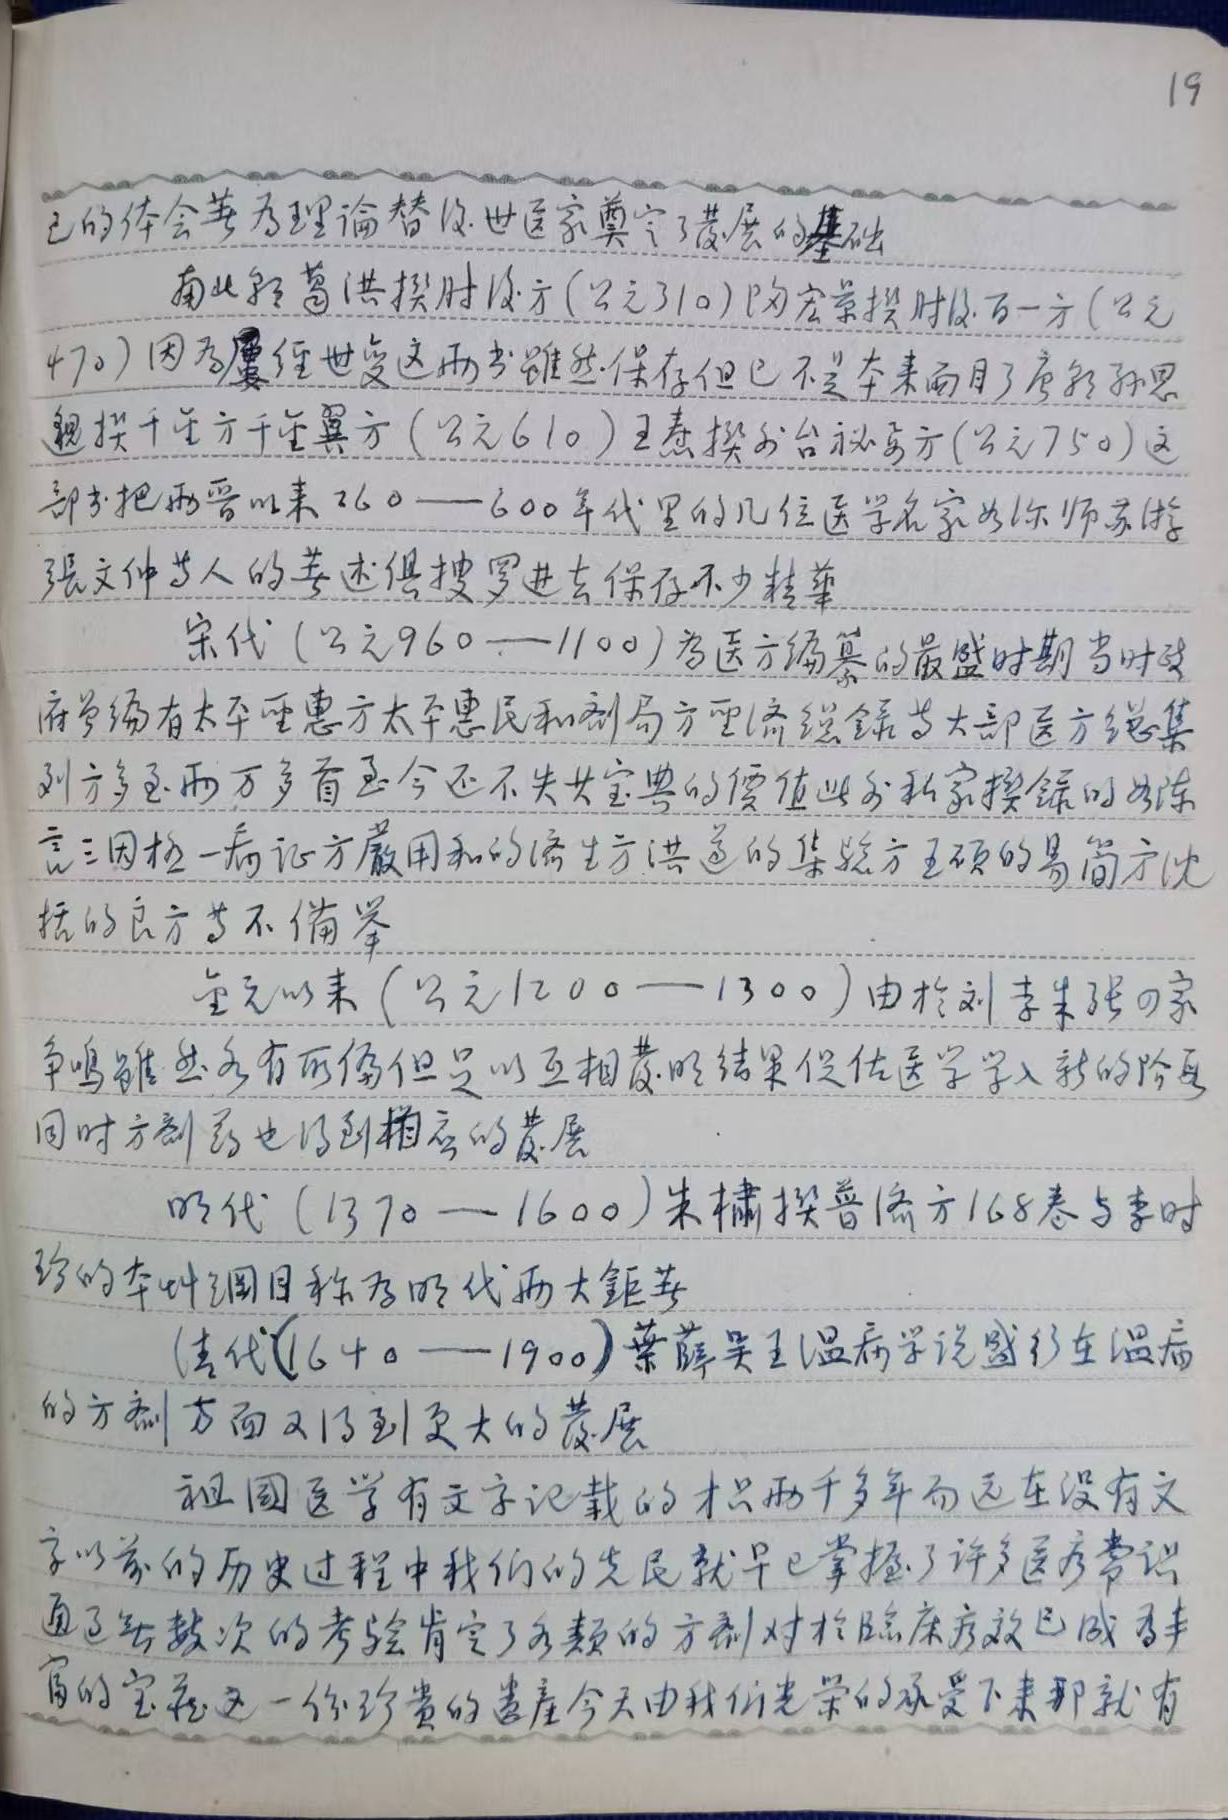 19
己的体会著为理論替後世医家奠定了發展的基础
南北朝葛洪撰肘後方(公元310)陶宏景撰肘後百一方(公元
470)因为屢經世变这两书雖然保存但已不是本来面目了唐朝孙思
邈撰千金方千金翼方(公元610)王焘撰外台祕要方(公元750)这
部书把两晋以来260——600年代里的几位医学名家如深师苏游
張文仲等人的著述俱搜罗进去保存不少精華
宋代(公元960——1100)为医方編纂的最盛时期当时政
府曾編有太平聖惠方太平惠民和劑局方聖济總錄等大部医方總集
列方多至两万多首至今还不失其宝典的價值此外私家撰錄的如陈
言三因极一病証方嚴用和的济生方洪遵的集驗方王碩的易简方沈
括的良方等不備举
金元以来(公元1200——1300)由於刘李朱張四家
争鳴雖然各有所偏但足以互相發明结果促使医学学入新的阶段
同时方劑药也得到相应的發展
明代(1370——1600)朱橚撰普济方168卷与李时
珍的本艸綱目称为明代两大鉅著
清代(1640——1900)葉薛吴王温病学说盛行在温病
的方劑方面又得到更大的發展
祖國医学有文字记载的才只两千多年而远在没有文
字以前的历史过程中我们的先民就早已掌握了许多医疗常识
通过無数次的考驗肯定了各類的方劑对於臨床疗效已成为丰
富的宝藏这一份珍贵的遗産今天由我们光荣的承受下来那就有